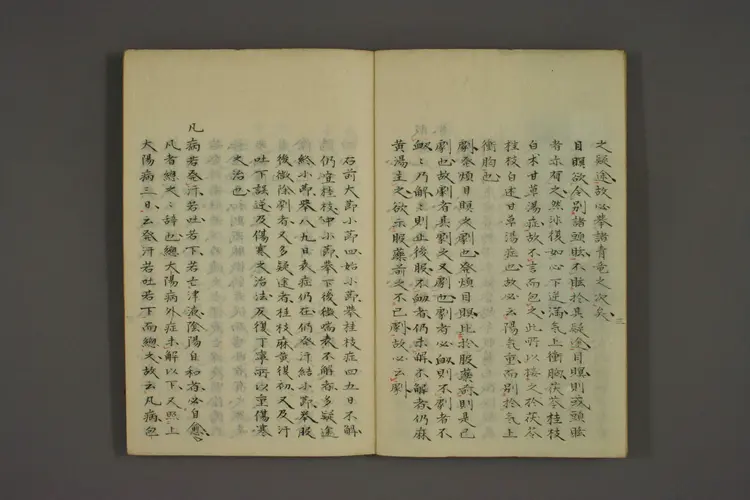 之疑途故必挙諸青竜之次矣
目瞑欲令別諸頭眩不眩於其疑途目瞑則或頭眩
者亦有之然非復如心下逆滿氣上衝胸茯苓桂枝
白朮甘草湯症故不言而包之此所以接之於茯苓
桂枝白朮甘草湯症也故必云陽氣重而別於氣上
衝胸也
劇發煩目瞑之劇也發煩目瞑比於服藥前則是已
劇也故劇者具劇之又劇也劇者必衄則不劇者不
衄衄乃解解則止後服不衄者仍未解不解者仍麻
黃湯主之欲示服藥前之不已劇故必云劇
右前大莭小莭四始小莭挙桂枝症四五日不解
仍宜桂枝中小莭挙下後微喘表不解者多疑途
終小莭挙八九日表症仍在仍發汗結小莭挙服
後微除劇者又多疑途者桂枝麻黃復初又及汗
吐下誤逆及傷寒之治法反復丁寧所以重傷寒
之治也
凡病若發汗若吐若下若亡津液陰陽自和者必自愈
凡者總之之辭也總太陽病外症未解以下又照上
太陽病三日云發汗若吐若下而總之故云凡病包